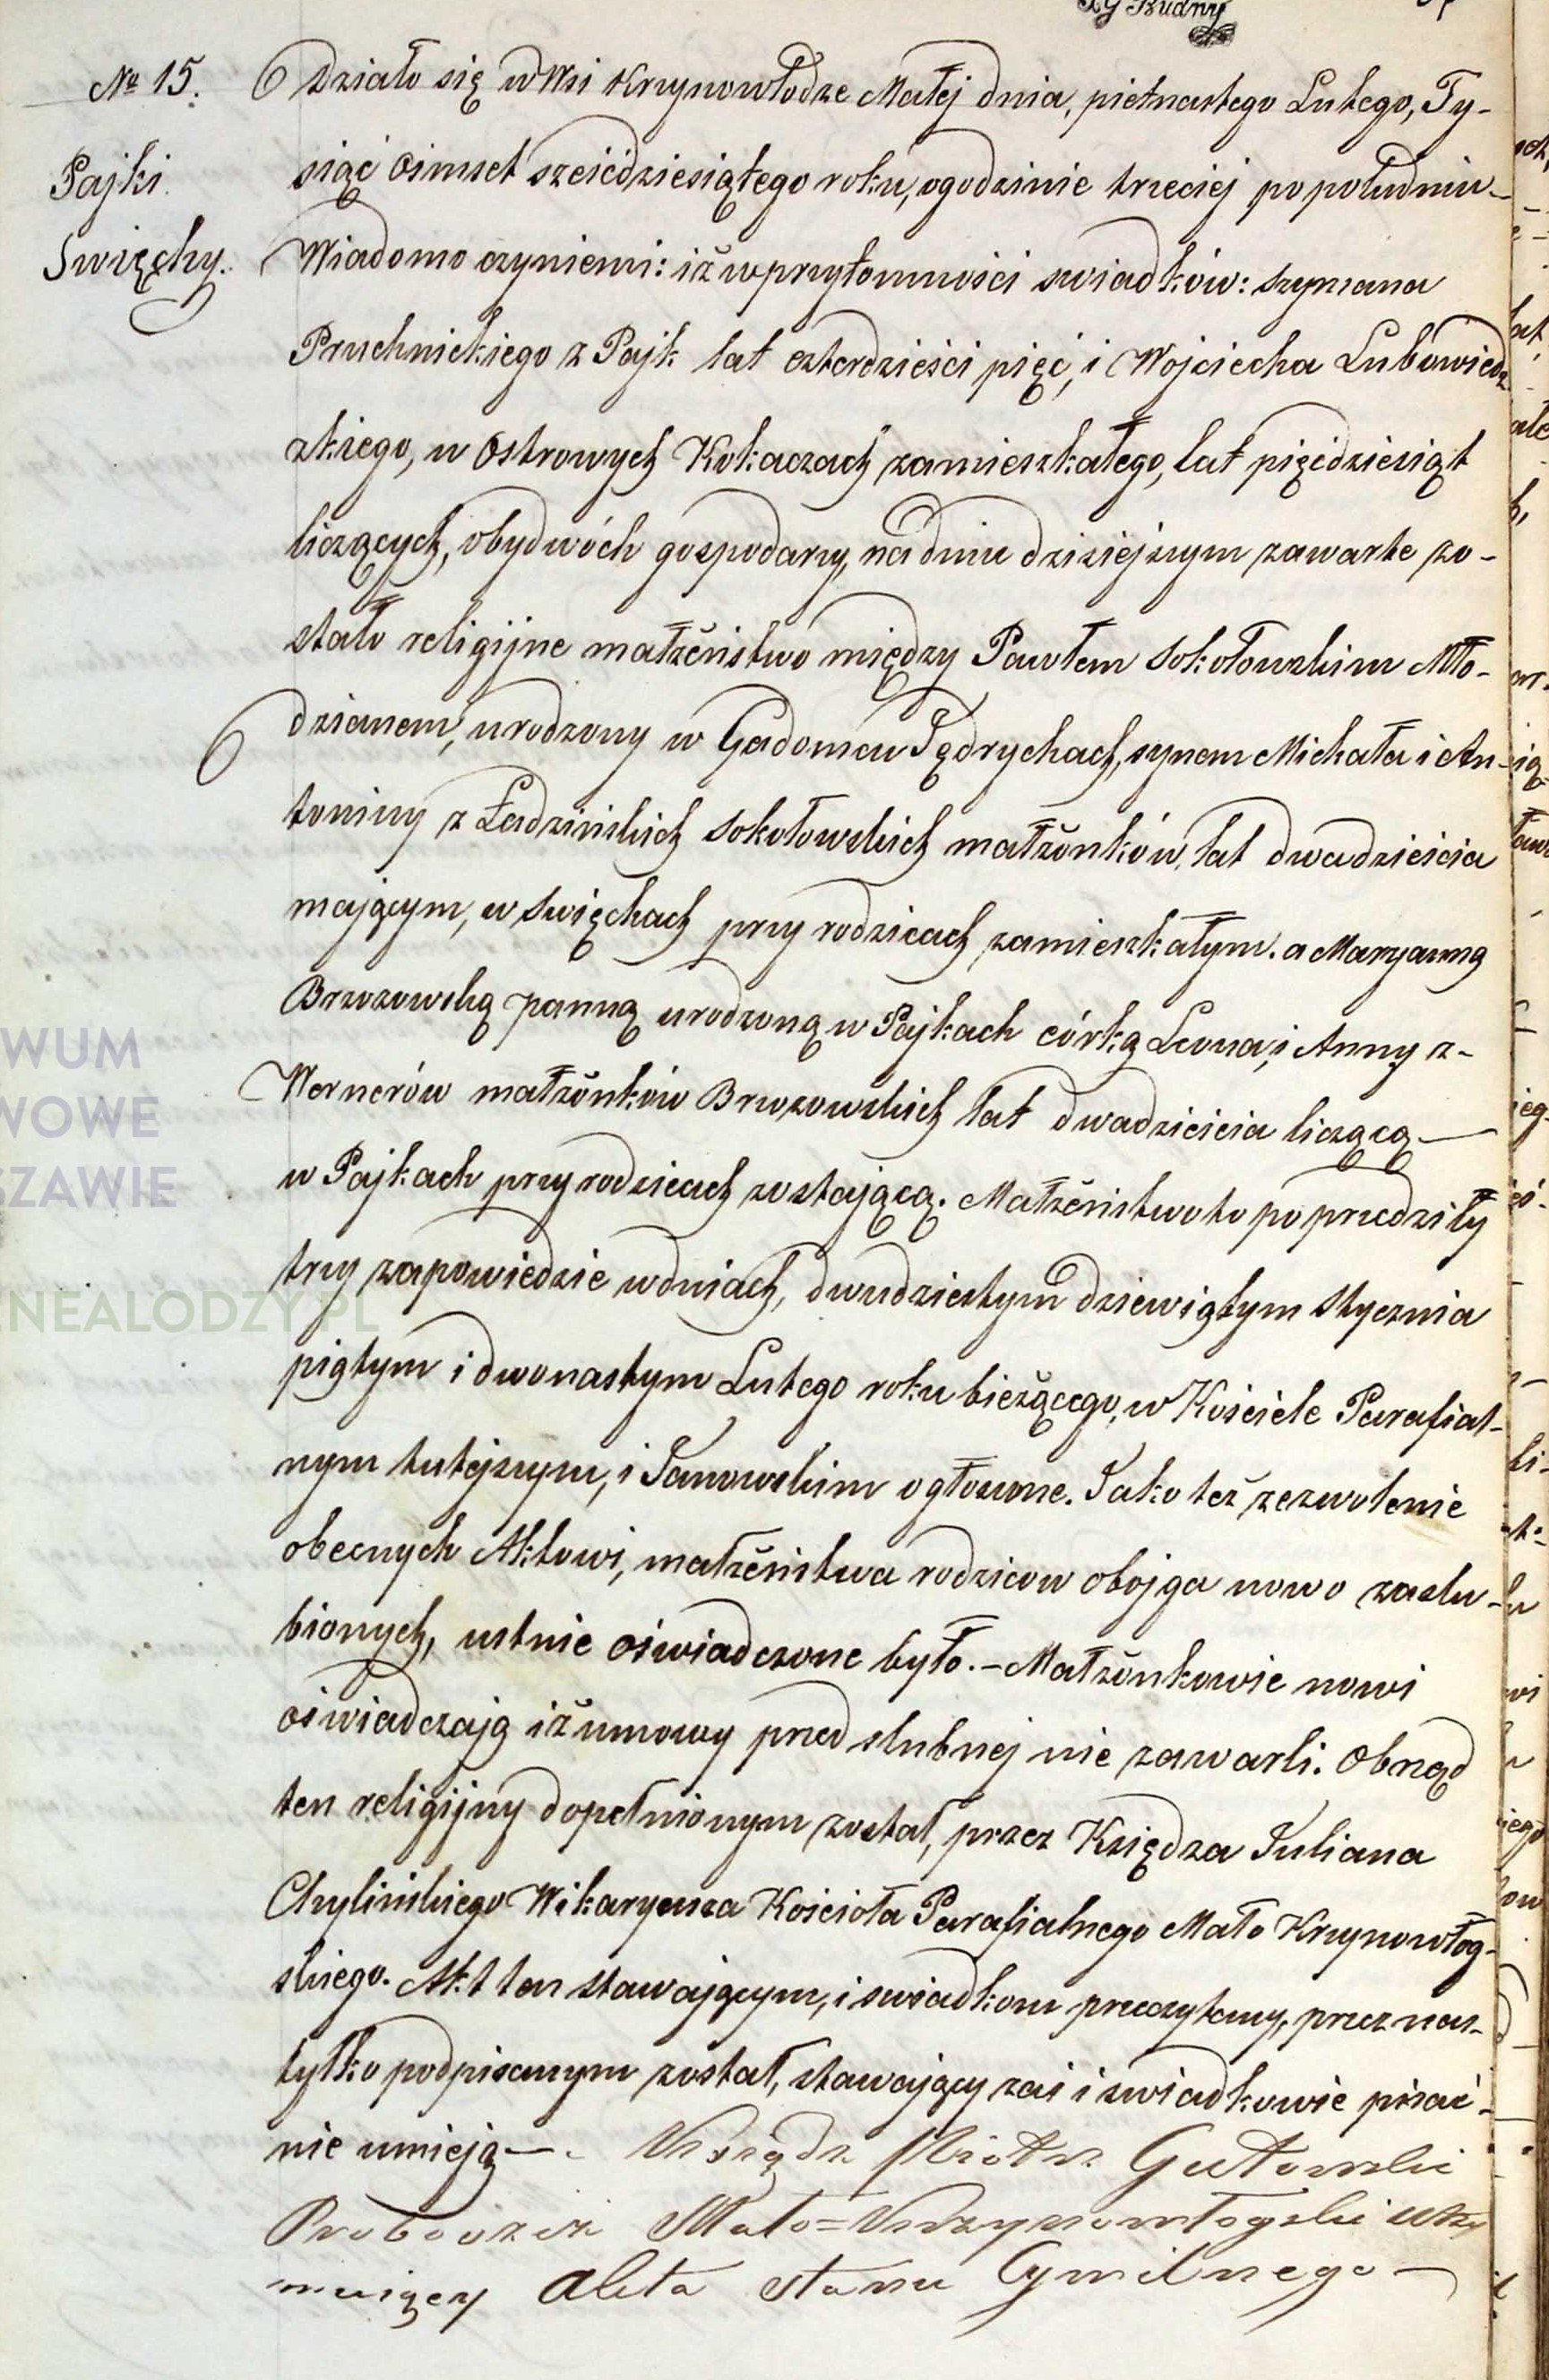 XJ Budny
№ 15.
Pajki
Swięchy.
Działo się w Wsi Krzynowłodze Małej dnia, pietnastego Lutego, Ty-
siąc Osimset sześćdziesiątego roku, o godzinie trzeciej popołudniu
Wiadomo czyniemi: iż w przytomności swiadków: Szymana
Pruchnickiego z Pajk lat czterdzieści pięć, i Wojciecha Lubowiedz
zkiego, w Ostrowych Kokaczach zamieszkałego, lat pięćdziesiąt
liczących, obydwóch gospodarzy, na dniu dzisiejszym zawarte zo-
stało religijne małżeństwo między Pawłem Sokołowskim Mło-
dzianem, urodzony w Gadomcu Jędrychach, synem Michała i An-
toniny z Ładzińskich Sokołowskich małżonków, lat dwadzieścia
mającym, w Swięchach przy rodzicach zamieszkałym. a Maryanną
Brzozowską panną urodzoną w Pajkach córką Leona, i Anny z-
Wernerów małżonków Brzozowskich lat dwadzieścia liczącą
w Pajkach przy rodzicach zostającą. Małżeństwo to poprzedziły
trzy zapowiedzie w dniach, dwudziestym dziewiątym Stycznia
piątym i dwonastym Lutego roku bieżącego, w Kościele Parafial-
nym tutejszym, i Janowskim ogłoszone. Jako też zezwolenie
obecnych Aktowi, małżeństwa rodzicow obojga nowo zaslu-
bionych, ustnie oświadczone było. - Małżonkowie nowi
oświadczają iż umowy przed slubnej nie zawarli. Obrząd
ten religijny dopełnionym został, przez Księdza Juliana
Chylińskiego Wikaryusza Kościoła Parafialnego Mało Krzynowłog-
skiego. Akt ten stawającym, i swiadkom przeczytany, przez nas-
tylko podpisanym został, stawający zaś i swiadkowie pisać-
nie umieją Xsiądz Piotr Gutowski
Proboszcz Mało=Krzynowłogski utrzy
mujący Akta stanu Cywilnego
WUM
WOWE
SZAWIE
ENEALODZY.PL